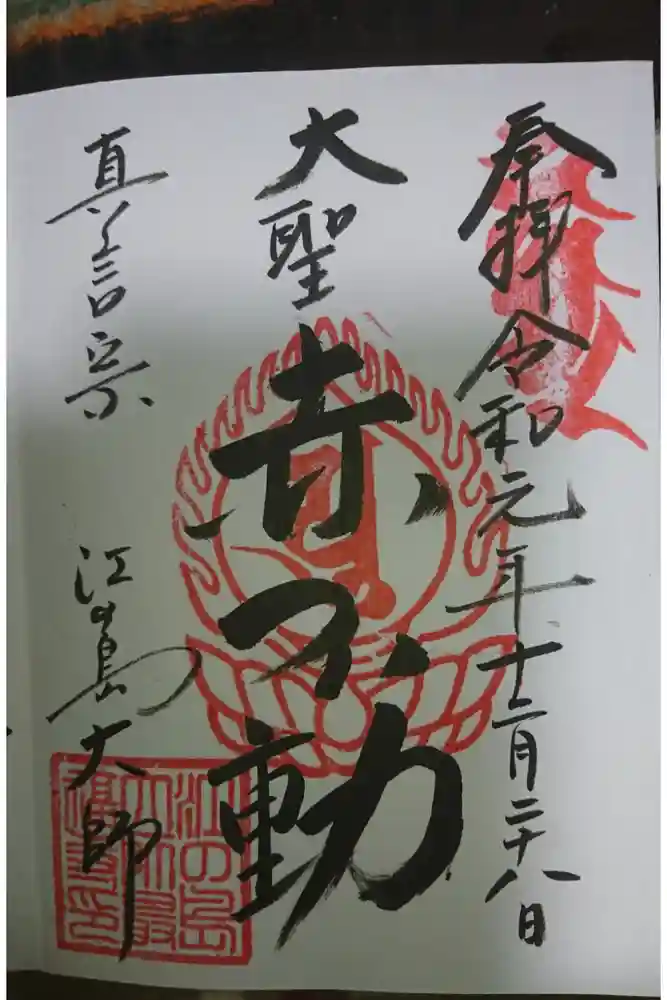 奉拝 令和元年十二月二十八日
大聖
赤不動
真言宗
江の島大師